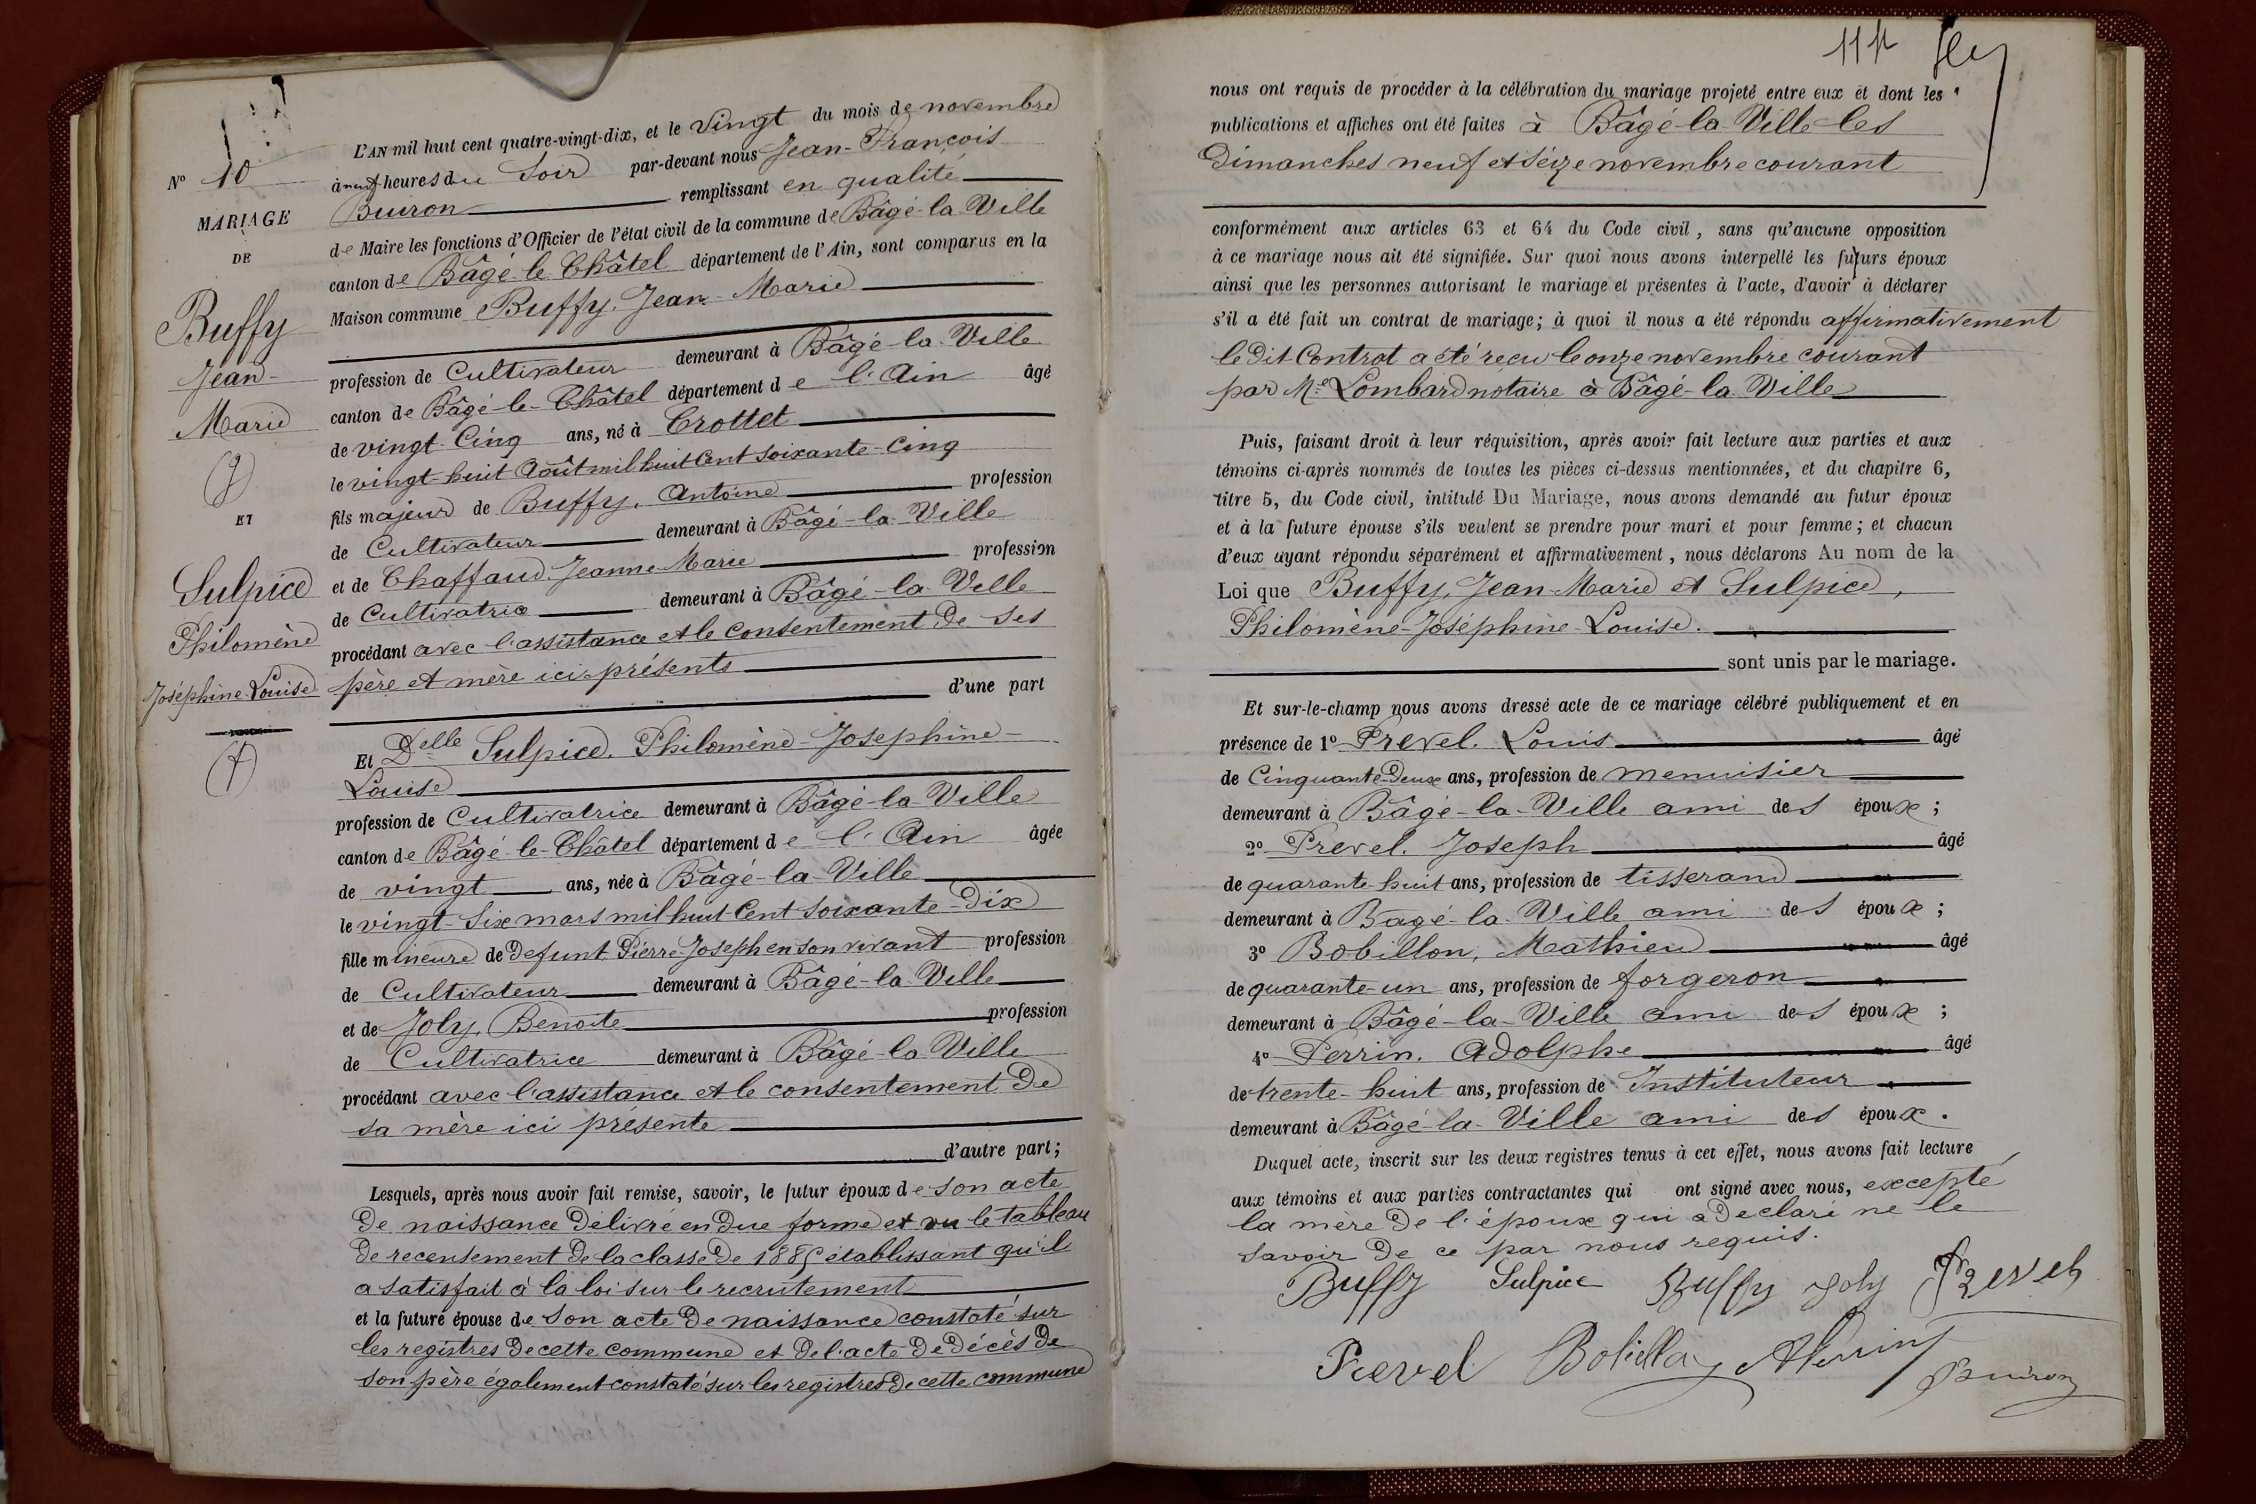 N° 10
MARIAGE
DE
Buffy
Jean-
Marie
ET
Sulpice
Philomène
Joséphine-Louise
L'AN mil huit cent quatre-vingt-dix, et le vingt du mois de novembre
à neuf heures du soir par-devant nous Jean-François
Buiron remplissant en qualité
de Maire les fonctions d'Officier de l'état civil de la commune de Bâgé-la-Ville
canton de Bâgé-le-Châtel département de l'Ain, sont comparus en la
Maison commune Buffy, Jean-Marie
profession de Cultivateur demeurant à Bâgé-la-Ville
canton de Bâgé-le-Châtel département de l'Ain âgé
de vingt-Cinq ans, né à Crottet
le vingt-huit Août mil huit Cent soixante-Cinq
fils majeur de Buffy, Antoine profession
de Cultivateur demeurant à Bâgé-la-Ville
et de Chaffaud, Jeanne-Marie profession
de Cultivatrice demeurant à Bâgé-la-Ville
procédant avec l'assistance et le consentement de ses
père et mère ici présents
d'une part
Et Delle Sulpice, Philomène-Josephine-
Louise
profession de Cultivatrice demeurant à Bâgé-la-Ville
canton de Bâgé-le-Châtel département de l'Ain âgée
de vingt ans, née à Bâgé-la-Ville
le vingt-six mars mil huit Cent soixante-Dix
fille mineure de Defunt Pierre-Joseph en son vivant profession
de Cultivateur demeurant à Bâgé-la-Ville
et de Joly, Benoite profession
de Cultivatrice demeurant à Bâgé-la-Ville
procédant avec l'assistance et le consentement de
sa mère ici présente
d'autre part;
Lesquels, après nous avoir fait remise, savoir, le futur époux de son acte
de naissance délivré en due forme et vu le tableau
de recensement de la classe de 1885 établissant qu'il
a satisfait à la loi sur le recrutement
et la future épouse de son acte de naissance constaté sur
les registres de cette commune et de l'acte de décès de
son père également constaté sur les registres de cette commune
nous ont requis de procéder à la célébration du mariage projeté entre eux et dont les
publications et affiches ont été faites à Bâgé-la-Ville les
Dimanches neuf et seize novembre courant
conformément aux articles 63 et 64 du Code civil, sans qu'aucune opposition
à ce mariage nous ait été signifiée. Sur quoi nous avons interpellé les futurs époux
ainsi que les personnes autorisant le mariage et présentes à l'acte, d'avoir à déclarer
s'il a été fait un contrat de mariage; à quoi il nous a été répondu affirmativement
le dit Contrat a été reçu le onze novembre courant
par Me Lombard notaire à Bâgé-la-Ville
Puis, faisant droit à leur réquisition, après avoir fait lecture aux parties et aux
témoins ci-après nommés de toutes les pièces ci-dessus mentionnées, et du chapitre 6,
titre 5, du Code civil, intitulé Du Mariage, nous avons demandé au futur époux
et à la future épouse s'ils veulent se prendre pour mari et pour femme; et chacun
d'eux ayant répondu séparément et affirmativement, nous déclarons Au nom de la
Loi que Buffy, Jean-Marie et Sulpice,
Philomène-Joséphine-Louise.
sont unis par le mariage.
Et sur-le-champ nous avons dressé acte de ce mariage célébré publiquement et en
présence de 1° Prevel. Louis âgé
de Cinquante-Deux ans, profession de menuisier
demeurant à Bâgé-la-Ville ami des époux;
2° Prevel. Joseph âgé
de quarante-huit ans, profession de tisserand
demeurant à Bagé-la-Ville ami des époux;
3° Bobillon, Mathieu âgé
de quarante-un ans, profession de forgeron
demeurant à Bâgé-la-Ville ami des époux;
4° Perrin. Adolphe âgé
de trente-huit ans, profession de Instituteur
demeurant à Bâgé-la-Ville ami des époux.
Duquel acte, inscrit sur les deux registres tenus à cet effet, nous avons fait lecture
aux témoins et aux parties contractantes qui ont signé avec nous, excepté
la mère de l'époux qui a declaré ne le
savoir de ce par nous requis.
Buffy Sulpice Buffy Joly Prevel
Prevel APerrin
Buiron